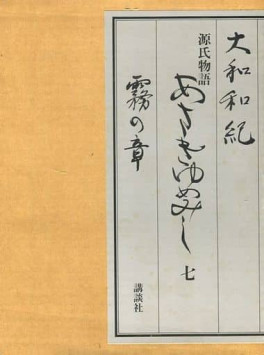 大和和紀
源氏物語
あさきゆめみし 七
霧の章
講談社